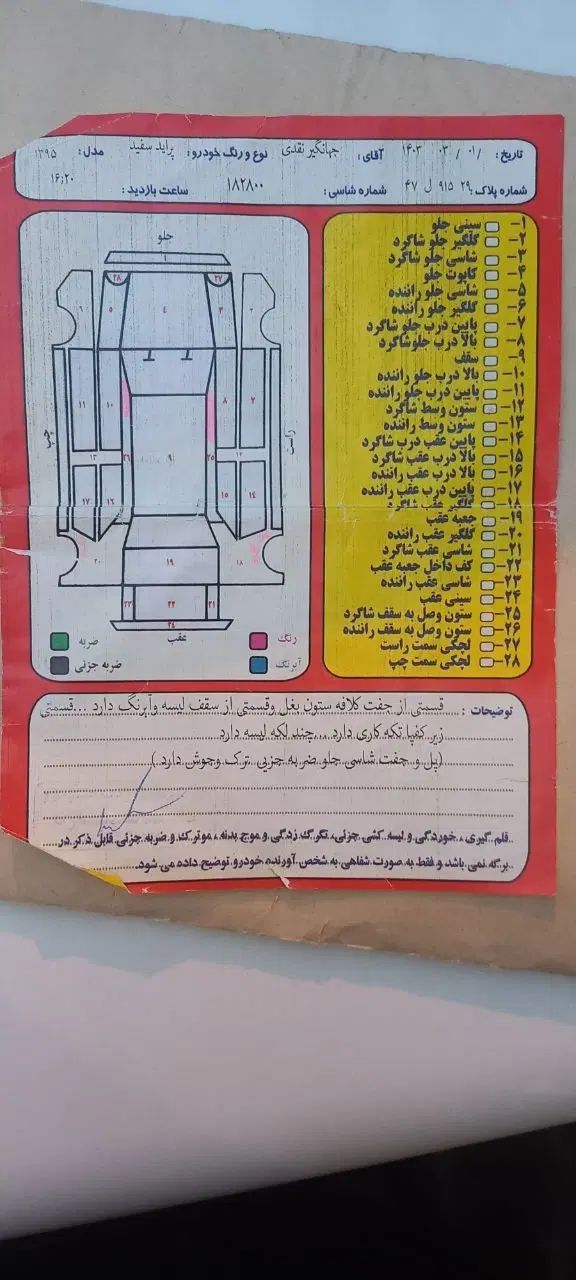 تاریخ : ۰۱/ ۰۳ / ۱۴۰۳ آقای : جهانگیر نقدی نوع و رنگ خودرو : پراید سفید مدل : ۱۳۹۵
شماره پلاک : ۲۹ ۹۱۵ ل ۴۷ شماره شاسی : ۱۸۲۸۰۰ ساعت بازدید : ۱۶:۲۰
۱- سینی جلو
۲- گلگیر جلو شاگرد
۳- شاسی جلو شاگرد
۴- کاپوت جلو
۵- شاسی جلو راننده
۶- گلگیر جلو راننده
۷- پایین درب جلو شاگرد
۸- بالا درب جلو شاگرد
۹- سقف
۱۰- بالا درب جلو راننده
۱۱- پایین درب جلو راننده
۱۲- ستون وسط شاگرد
۱۳- ستون وسط راننده
۱۴- پایین عقب درب شاگرد
۱۵- بالا درب عقب شاگرد
۱۶- بالا درب عقب راننده
۱۷- پایین درب عقب راننده
۱۸- گلگیر عقب شاگرد
۱۹- جعبه عقب
۲۰- گلگیر عقب راننده
۲۱- شاسی عقب شاگرد
۲۲- کف داخل جعبه عقب
۲۳- شاسی عقب راننده
۲۴- سینی عقب
۲۵- ستون وصل به سقف شاگرد
۲۶- ستون وصل به سقف راننده
۲۷- لچکی سمت راست
۲۸- لچکی سمت چپ
جلو
۱
۲۷ ۲۸
۲ ۳ ۴ ۵ ۶
۷ ۸ ۱۰ ۱۱
راست چپ
۱۲ ۲۵ ۹ ۲۶ ۱۳
۱۴ ۱۵ ۱۶ ۱۷
۱۸ ۱۹ ۲۰
۲۱ ۲۲ ۲۳
۲۴
عقب
رنگ ضربه
آبرنگ ضربه جزئی
توضیحات : قسمتی از جفت کلافه ستون بغل وقسمتی از سقف لیسه وآبرنگ دارد ...قسمتی
زیر کفپا تکه کاری دارد...چند لکه لیسه دارد
(پل و جفت شاسی جلو ضربه جزیی ترک وجوش دارد)
قلم گیری ، خوردگی و لیسه کشی جزئی، تگرگ زدگی و موج بدنه، موترک و ضربه جزئی قابل ذکر در
برگه نمی باشد و فقط به صورت شفاهی به شخص آورنده خودرو توضیح داده می شود.